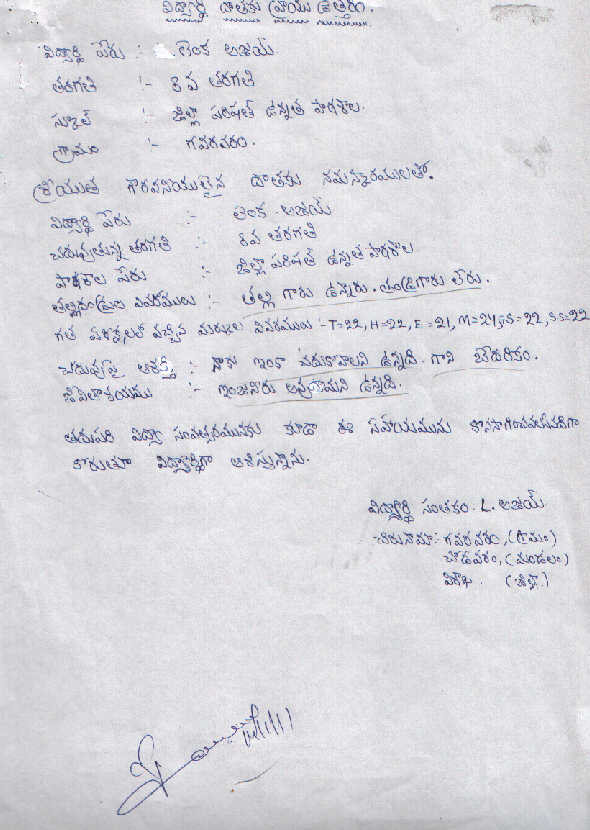 విద్యార్థి దాతకు వ్రాయు ఉత్తరం.
విద్యార్థి పేరు :- లెంక అజయ్
తరగతి :- 8వ తరగతి
స్కూల్ :- జిల్లా పరిషత్ ఉన్నత పాఠశాల.
గ్రామం :- గవరవరం.
శ్రీయుత గౌరవనీయులైన దాతకు నమస్కారములతో.
విద్యార్థి పేరు :- లెంక అజయ్
చదువుతున్న తరగతి :- 8వ తరగతి
పాఠశాల పేరు :- జిల్లా పరిషత్ ఉన్నత పాఠశాల
తల్లిదండ్రుల వివరములు :- తల్లి గారు ఉన్నారు. తండ్రిగారు లేరు.
గత పరీక్షలలో వచ్చిన మార్కుల వివరములు :- T=22, H=22, E=21, M=24, S=22, S.S=22
చదువుపై ఆసక్తి :- నాకు ఇంకా చదుకోవాలని ఉన్నది. గాని బేదరికం.
జీవితాశయము :- ఇంజనీరు అవ్వాలని ఉన్నది.
తదుపరి విద్యా సంవత్సరమునకు కూడా ఈ సహాయమును కొనసాగించవలసినదిగా
కోరుతూ విద్యార్థిగా ఆశిస్తున్నాను.
విద్యార్థి సంతకం. L. అజయ్
చిరునామా :- గవరవరం, (గ్రామం)
చోడవరం, (మండలం)
విశాఖ. (జిల్లా)